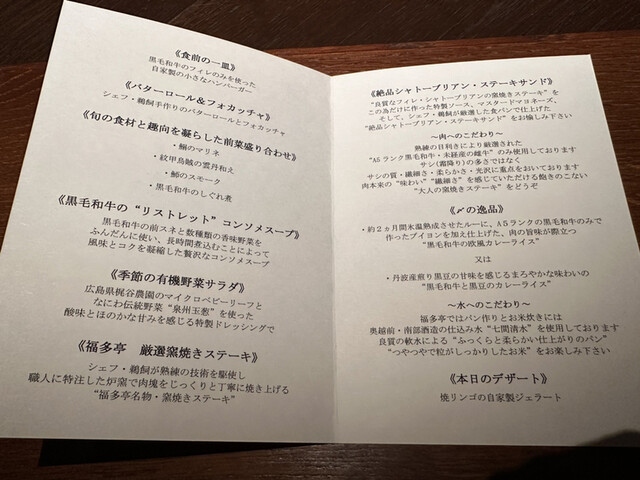 《食前の一皿》
黒毛和牛のフィレのみを使った
自家製の小さなハンバーガー
《バターロール&フォカッチャ》
シェフ・鵜飼手作りのバターロールとフォカッチャ
《旬の食材と趣向を凝らした前菜盛り合わせ》
・鰯のマリネ
・紋甲烏賊の雲丹和え
・鰤のスモーク
・黒毛和牛のしぐれ煮
《黒毛和牛の“リストレット”コンソメスープ》
黒毛和牛の前スネと数種類の香味野菜を
ふんだんに使い、長時間煮込むことによって
風味とコクを凝縮した贅沢なコンソメスープ
《季節の有機野菜サラダ》
広島県梶谷農園のマイクロベビーリーフと
なにわ伝統野菜“泉州玉葱”を使った
酸味とほのかな甘みを感じる特製ドレッシングで
《福多亭 厳選窯焼きステーキ》
シェフ・鵜飼が熟練の技術を駆使し
職人に特注した炉窯で肉塊をじっくりと丁寧に焼き上げる
“福多亭名物・窯焼きステーキ”
《絶品シャトーブリアン・ステーキサンド》
“良質なフィレ・シャトーブリアンの窯焼きステーキ”を
この為だけに作った特製ソース、マスタードマヨネーズ、
そして、シェフ・鵜飼が厳選した食パンで仕上げた
“絶品シャトーブリアン・ステーキサンド”をお愉しみ下さい
〜肉へのこだわり〜
熟練の目利きにより厳選された
“A5ランク黒毛和牛・未経産の雌牛”のみ使用しております
サシ(霜降り)の多さではなく
サシの質・繊細さ・柔らかさ・光沢に重点をおいてます
肉本来の“味わい”“繊細さ”を感じていただける飽きのこない
“大人の窯焼きステーキ”をどうぞ
《〆の逸品》
・約2ヵ月間氷温熟成させたルーに、A5ランクの黒毛和牛のみで
作ったブイヨンを加え仕上げた、肉の旨味が際立つ
“黒毛和牛の欧風カレーライス”
又は
・丹波産煎り黒豆の甘味を感じるまろやかな味わいの
“黒毛和牛と黒豆のカレーライス”
〜水へのこだわり〜
福多亭ではパン作りとお米炊きには
奥越前・南部酒造の仕込み水“七間清水”を使用しております
良質の軟水による“ふっくらと柔らかい仕上がりのパン”
“つやつやで粒がしっかりしたお米”をお楽しみ下さい
《本日のデザート》
焼リンゴの自家製ジェラート